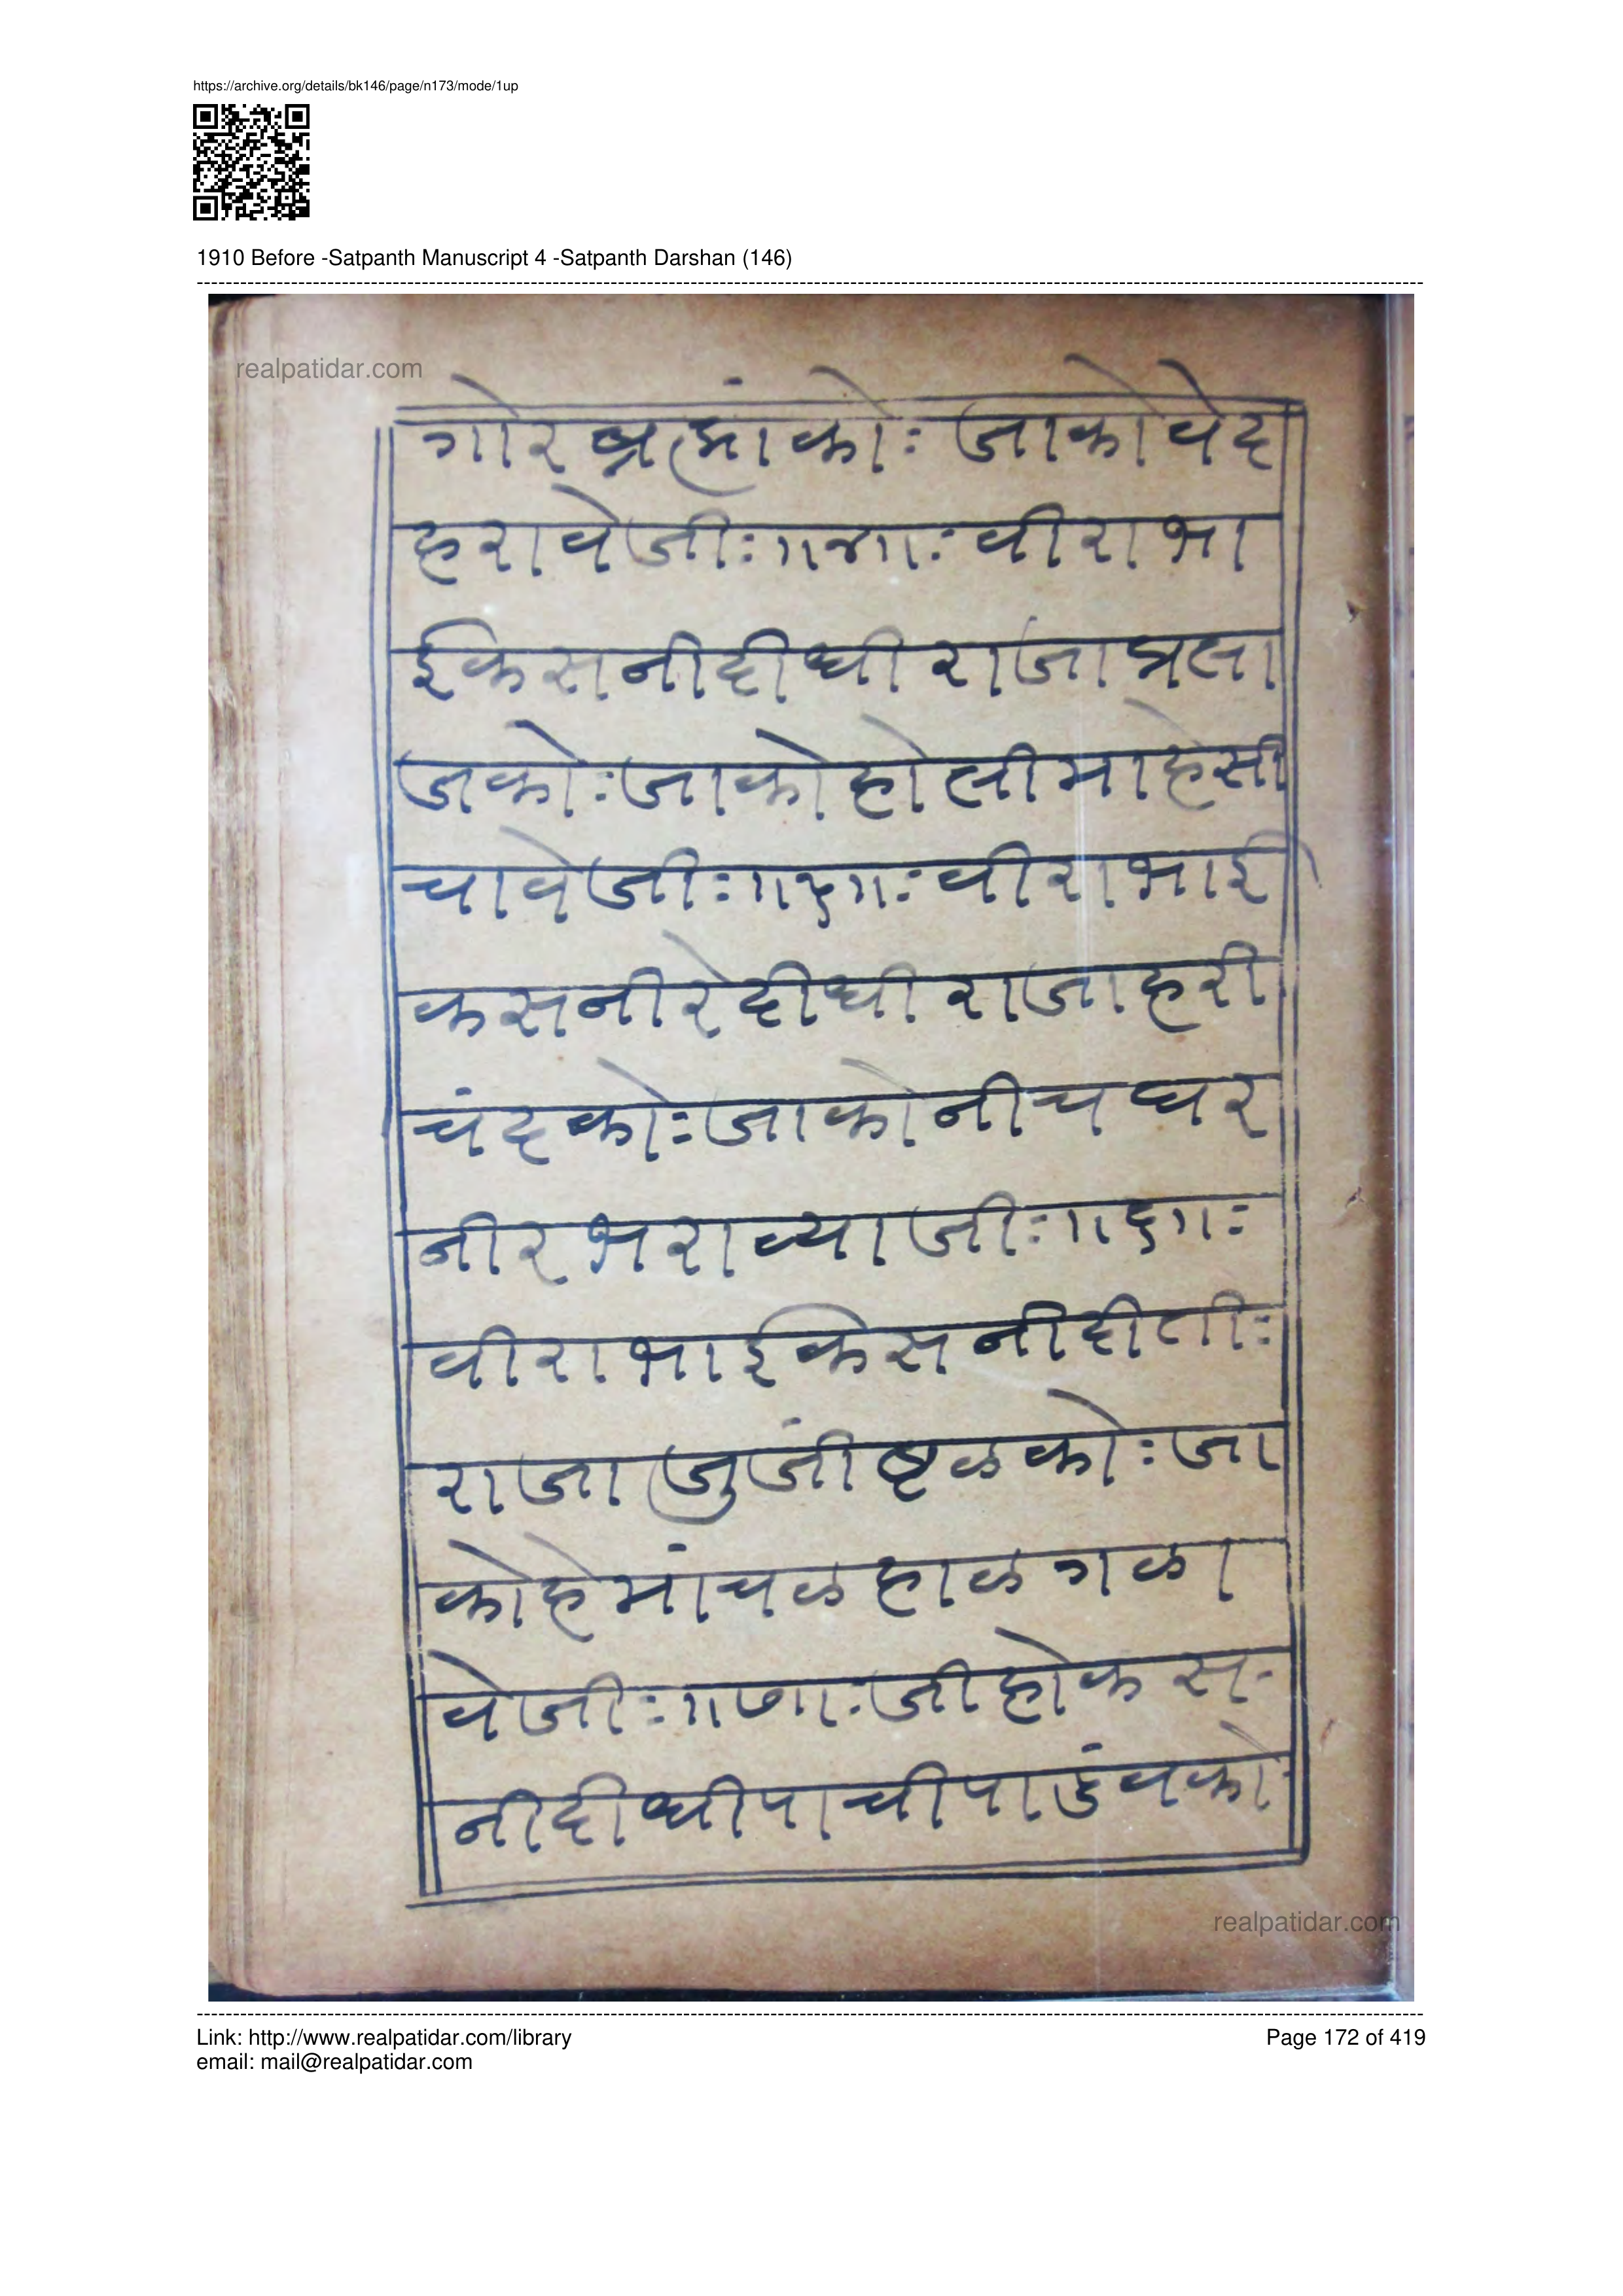 https://archive.org/details/bk146/page/n173/mode/1up
1910 Before -Satpanth Manuscript 4 -Satpanth Darshan (146)
realpatidar.com
गोर ब्रह्मांकोः जाको वेद
हरावेजीः॥४॥ः वीराभा
ईकसनीदीधी राजा प्रला
जकोः जाको होलीमाहेसी
चावेजीः॥५॥ः वीराभाई
कसनीरेदीधी राजाहरी
चंदकोः जाको नीचघर
नीरभराव्याजीः॥६॥ः
वीराभाईकेसनीदीतीः
राजा जुजीष्टळकोः जा
कोहेमांचळहाळगळा
वेजीः॥७॥ः जीहोकस-
नीदीधीपाचीपाडंवको
realpatidar.com
Link: http://www.realpatidar.com/library
Page 172 of 419
email: mail@realpatidar.com